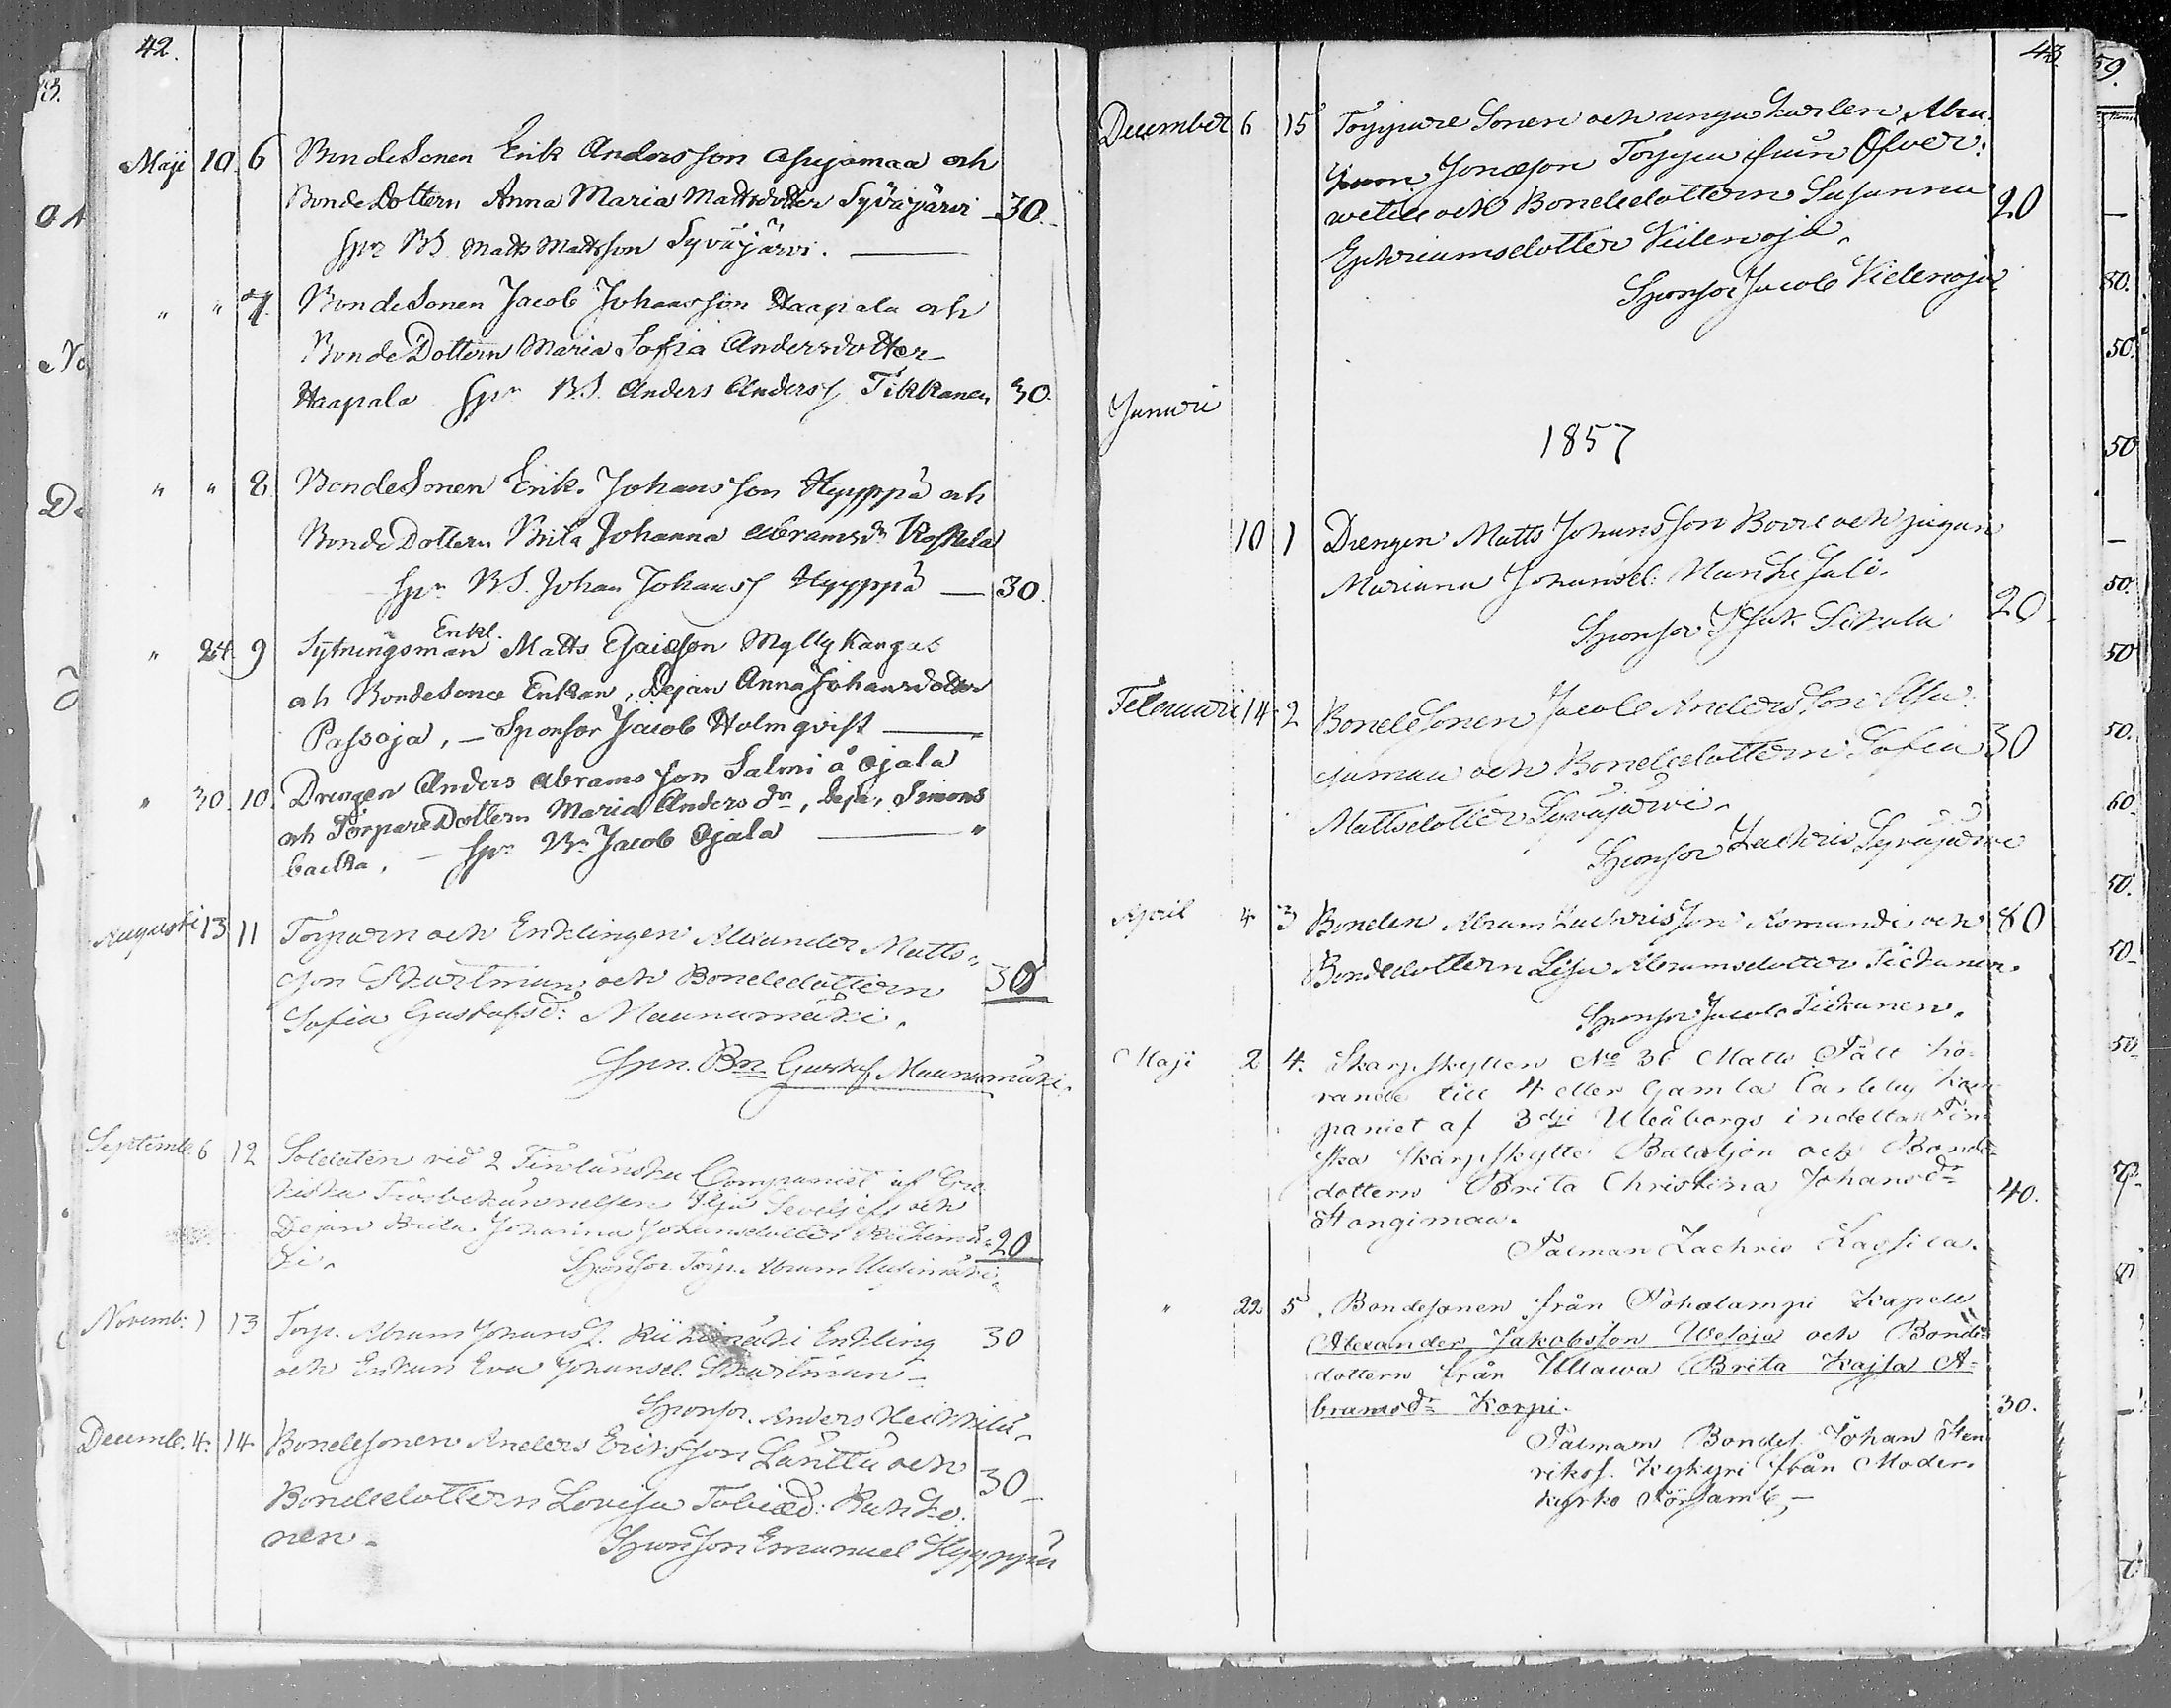 42.
Maji 10 6 BondeSonen Erik Andersson Asujamaa och
BondeDottern Anna Maria Mattsdotter Syväjärvi — 30.
Spr BS. Matts Mattsson Syväjärvi. —
" " 7. BondeSonen Jacob Johansson Haapala och
BondeDottern Maria Sofia Andersdotter
Haapala Spr BS. Anders Anderss Tikkanen 30.
" " 8 BondeSonen Erik Johansson Hyyppä och
BondeDottern Brita Johanna Abramsdr Koskela
Spr BS. Johan Johanss Hyyppä — 30.
" 24. 9 Sytningsman Enkl. Matts Esaiasson Myllykangas
och BondeSone Enkan, Pejan Anna Johansdotter
Passoja, — Sponsor Jacob Holmqvist — "
" 30. 10. Drengen Anders Abramsson Salmi å Ojala
och TorpareDottern Maria Andersdr, Simons
backa, — Spr Bn Jacob Ojala — "
Augusti 13 11 Torparn och Enklingen Alexander Matts-
son Skartman och Bondedottern 30
Sofia Gustafsd: Maunumäki.
Spn. Bn Gustaf Maunumäki.
Septemb. 6 12 Soldaten vid 2 Finländska Compañiet af Gre-
kiska Trosbekännelsen Ilja och
Pejan Brita Johanna Johansdotter Riihimä- 20
ki. Sponsor Torp. Abram Uusimäki.
Novemb: 1 13 Torp. Abram Johanss. Riihimäki Enkling 30
och Enkan Eva Johansd. Skartman —
Sponsor. Anders Heikkilä.
Decemb. 4. 14 Bondesonen Anders Eriksson Länttä och
Bondedottern Lovisa Tobiæd: Ruhko- 30 —
nen. Sponsor Emanuel Hyyppä
43.
December 6 15 Torpare Sonen och unga karlen Abra-
ham Jonæson Torppa ifrån Öfver-
wetil och Bondedottern Susanna 20
Ephraimsdotter Widenoja.
Sponsor Jacob Widenoja
Januari
1857
10 1 Drengen Matts Johansson Bovre och pigan
Mariana Johansd: Hanhisalo. 20.
Sponsor Isak Sikala
Februari 14 2 Bondesonen Jacob Andersson Asu-
jamaa och Bondedottern Sofia 30
Mattsdotter Syväjärvi.
Sponsor Zachris Syväjärvi
April 4 3 Bonden Abram Zachrisson Komundi och 80
Bondedottern Lisa Abramsdotter Tickanen.
Sponsor Jacob Tickanen.
Maji 2 4. Skarpskytten No 36 Matts Fält hö-
rande till 4 eller Gamla Carleby Kom-
paniet af 3dje Uleåborgs indelta Fin-
ska Skarpskytte Bataljon och Bonde-
dottern Brita Christina Johansdr 40.
Hangimaa.
Talman Zachris Lassila.
" 22 5. Bondesonen från Toholampi Kapell
Alexander Jakobsson Wetoja och Bonde-
dottern från Ullawa Brita Kajsa A-
bramsdr Korpi. 30.
Talman Bondes. Johan Hen-
rikss. Kykyri från Moder-
kyrko Församl, —